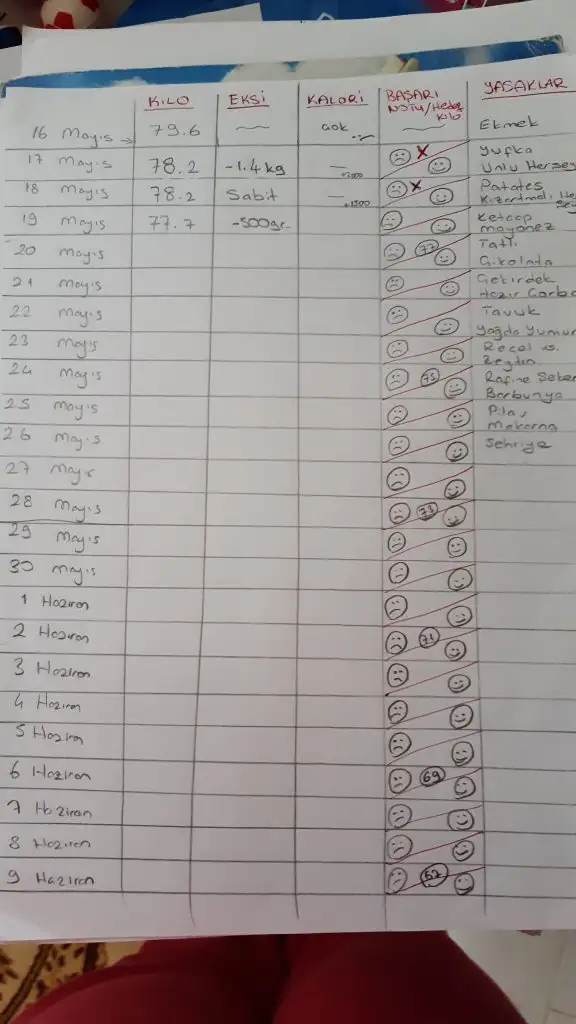 KILO EKSİ KALORİ BAŞARI NOTU/Hedef kilo YASAKLAR
16 Mayıs → 79.6 ~ çok ~ Ekmek
17 Mayıs 78.2 -1.4 kg — x Yufka
Unlu Herşey
18 Mayıs 78.2 Sabit — +1500 x Patates
Kızartması
19 Mayıs 77.7 -500gr. Ketçap
mayonez
20 Mayıs 77 Tatlı
Çikolata
21 Mayıs Çekirdek
Hazır Çorba
22 Mayıs Tavuk
Yağda Yumur
23 Mayıs Reçel vs.
Zeytin
24 Mayıs 75 Rafine Şeker
Barbunya
25 Mayıs Pilav
Makarna
26 Mayıs Şehriye
27 Mayıs
28 Mayıs 73
29 Mayıs
30 Mayıs
1 Haziran
2 Haziran 71
3 Haziran
4 Haziran
5 Haziran
6 Haziran 69
7 Haziran
8 Haziran
9 Haziran 67